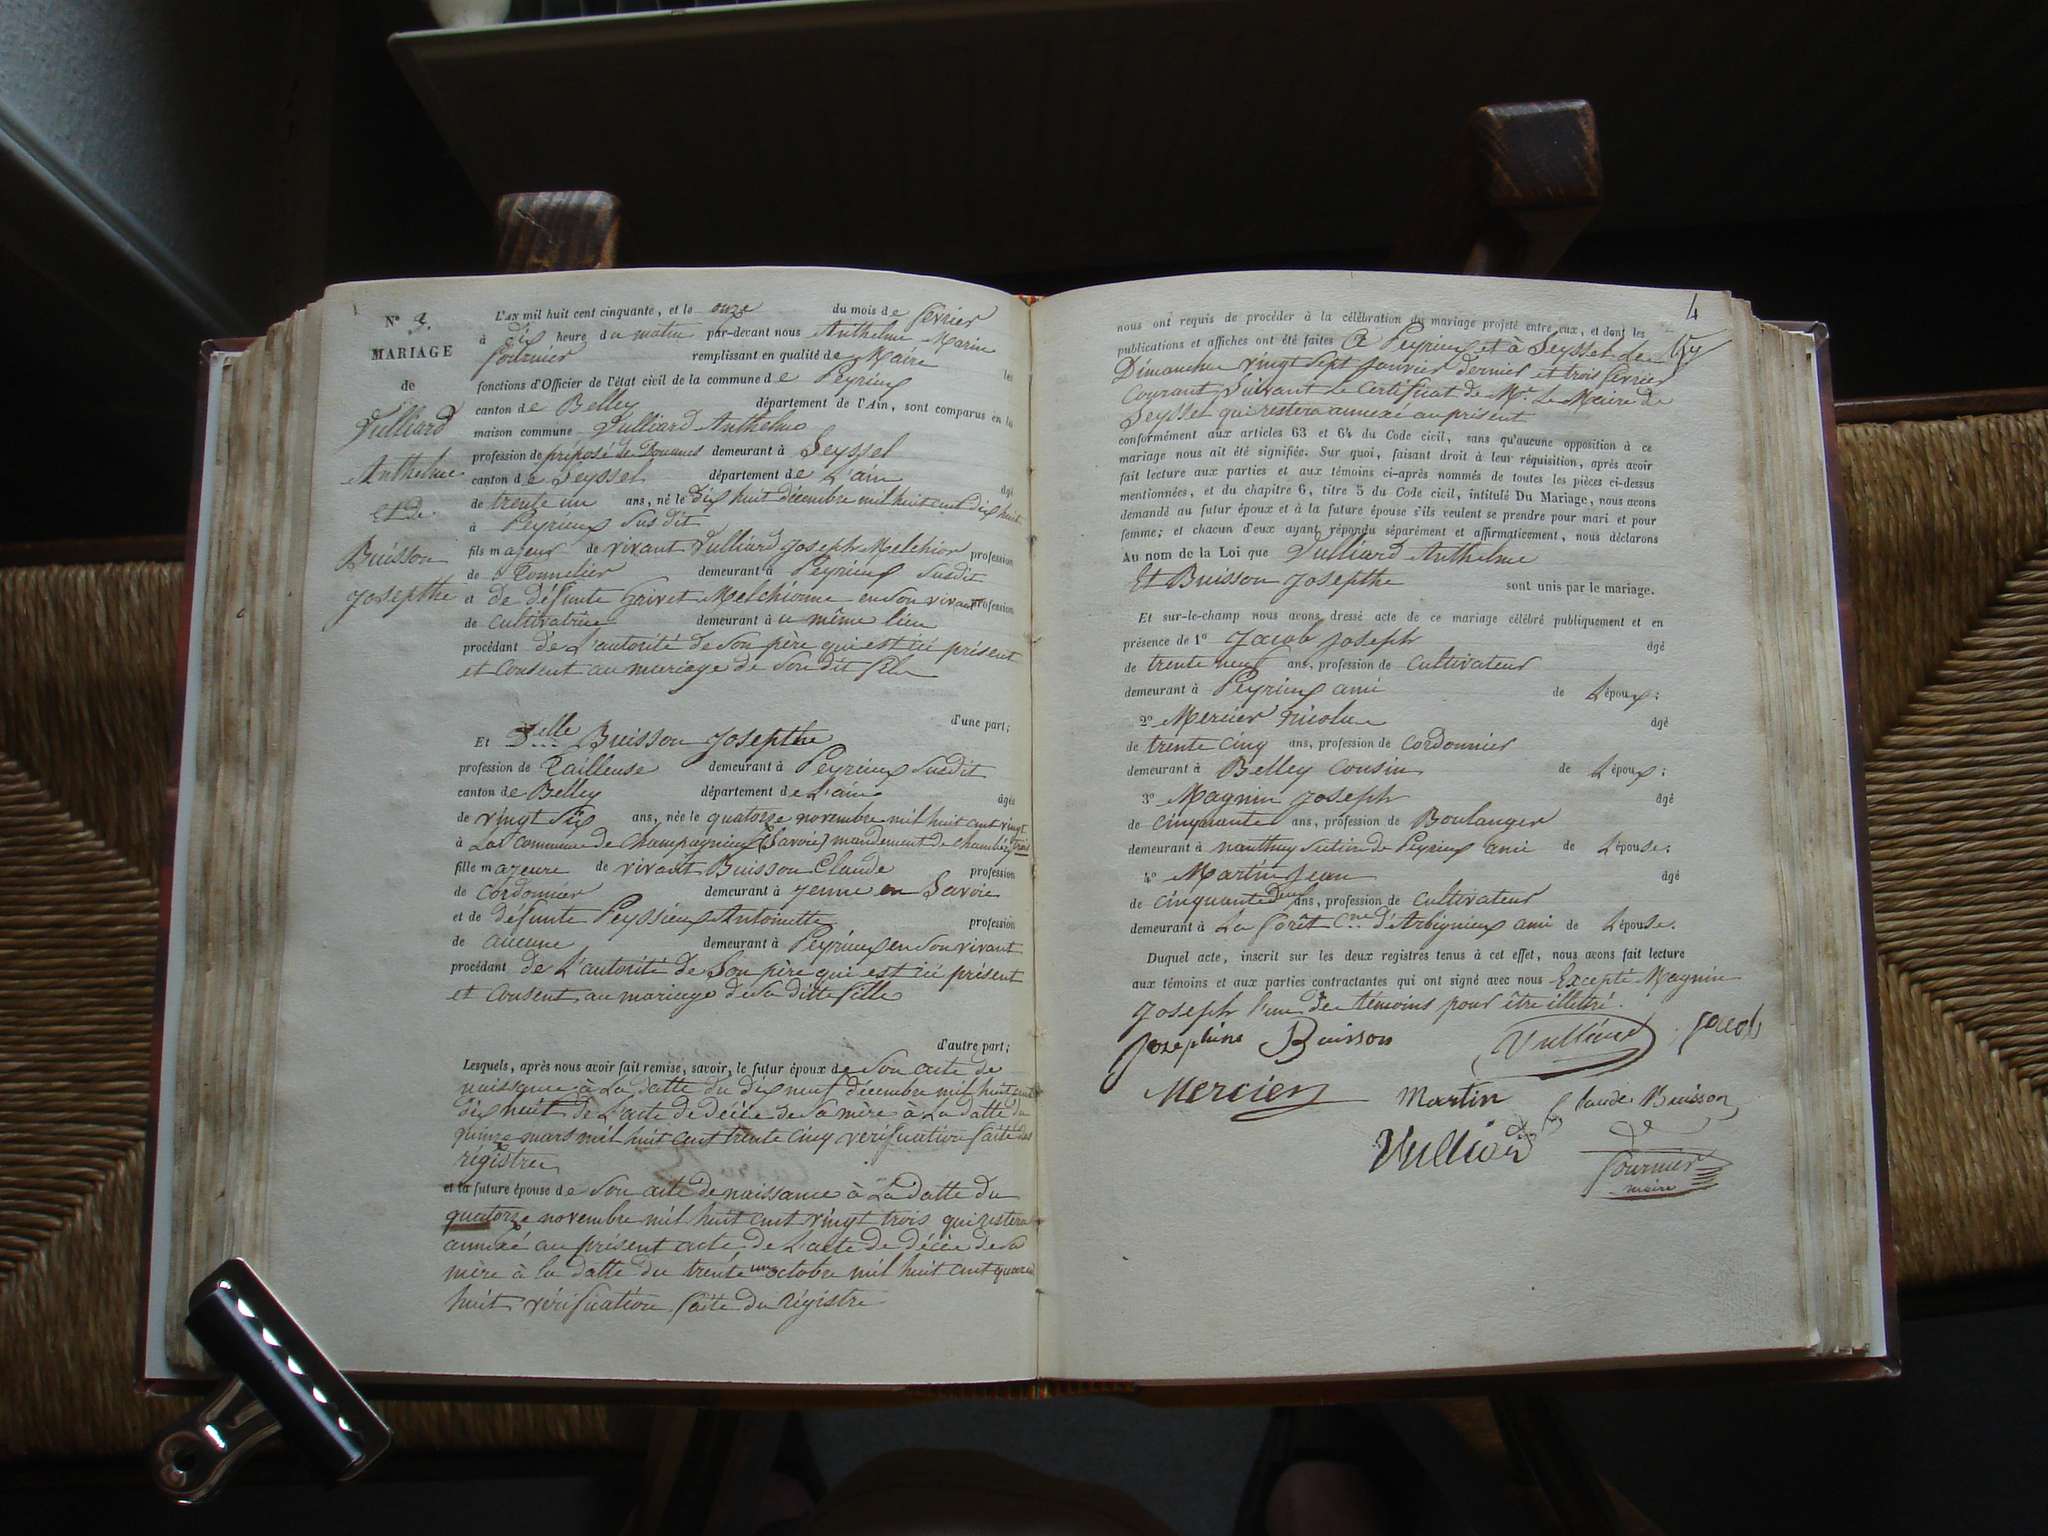 N° 3.
MARIAGE
de
Vulliard
Anthelme
et de
Buisson
Josepthe
L'AN mil huit cent cinquante, et le onze du mois de février
à dix heure du matin par-devant nous Anthelme Marin
Fournier remplissant en qualité de Maire les
fonctions d'Officier de l'état civil de la commune de Peyrieux
canton de Belley département de l'Ain, sont comparus en la
maison commune Vulliard Anthelme
profession de préposé de Douanes demeurant à Seyssel
canton de Seyssel département de L'ain âgé
de trente un ans, né le dix huit décembre mil huit cent dix huit
à Peyrieux susdit
fils majeur de vivant Vulliard Joseph Melchior profession
de Tonnelier demeurant à Peyrieux susdit
et de défunte Grivet Melchionne en son vivant profession
de cultivatrice demeurant à ce même lieu
procédant de L'autorité de son père qui est ici présent
et consent au mariage de son dit fils
d'une part;
Et Delle Buisson Josepthe
profession de Tailleuse demeurant à Peyrieux susdit
canton de Belley département de L'ain âgée
de vingt six ans, née le quatorze novembre mil huit cent vingt trois
à La commune de Champagnieux (Savoie) mandement de chambéry
fille majeure de vivant Buisson Claude profession
de cordonnier demeurant à yenne en Savoie
et de défunte Peyssieux Antoinette profession
de aucune demeurant à Peyrieux en son vivant
procédant de L'autorité de Son père qui est ici présent
et consent au mariage de sa ditte fille
d'autre part;
Lesquels, après nous avoir fait remise, savoir, le futur époux de son acte de
naissance à La datte du dix neuf décembre mil huit cent
dix huit de L'acte de décée de sa mère à La datte du
quinze mars mil huit cent trente cinq vérification faite des
régistres
et la future épouse de son acte de naissance à La datte du
quatorze novembre mil huit cent vingt trois qui restera
annexé au présent acte de L'acte de décée de sa
mère à la datte du trente un octobre mil huit cent quarante
huit vérification faite du régistre
4
nous ont requis de procéder à la célébration du mariage projeté entre eux, et dont les
publications et affiches ont été faites à Peyrieux et à Seyssel Les
Dimanches vingt sept Janvier dernier et trois février
Courant Suivant Le Certificat de Mr Le Maire de
Seyssel qui restera annexé au présent
conformément aux articles 63 et 64 du Code civil, sans qu'aucune opposition à ce
mariage nous ait été signifiée. Sur quoi, faisant droit à leur réquisition, après avoir
fait lecture aux parties et aux témoins ci-après nommés de toutes les pièces ci-dessus
mentionnées, et du chapitre 6, titre 5 du Code civil, intitulé Du Mariage, nous avons
demandé au futur époux et à la future épouse s'ils veulent se prendre pour mari et pour
femme; et chacun d'eux ayant répondu séparément et affirmativement, nous déclarons
Au nom de la Loi que Vulliard Anthelme
Et Buisson Josepthe sont unis par le mariage.
Et sur-le-champ nous avons dressé acte de ce mariage célébré publiquement et en
présence de 1° Jacob Joseph âgé
de trente neuf ans, profession de cultivateur
demeurant à Peyrieux ami de L'époux;
2° Mercier Nicolas âgé
de trente cinq ans, profession de cordonnier
demeurant à Belley cousin de L'époux;
3° Magnin Joseph âgé
de cinquante ans, profession de Boulanger
demeurant à nanthuy section de Peyrieux ami de L'épouse;
4° Martin Jean âgé
de cinquante deux ans, profession de cultivateur
demeurant à La forêt Cne d'Arbignieux ami de L'épouse.
Duquel acte, inscrit sur les deux registres tenus à cet effet, nous avons fait lecture
aux témoins et aux parties contractantes qui ont signé avec nous Excepté Magnin
Joseph l'un des témoins pour être illétré.
Josephine Buisson Vulliard Jacob
Mercier Martin Claude Buisson
Vulliod
Fournier
maire